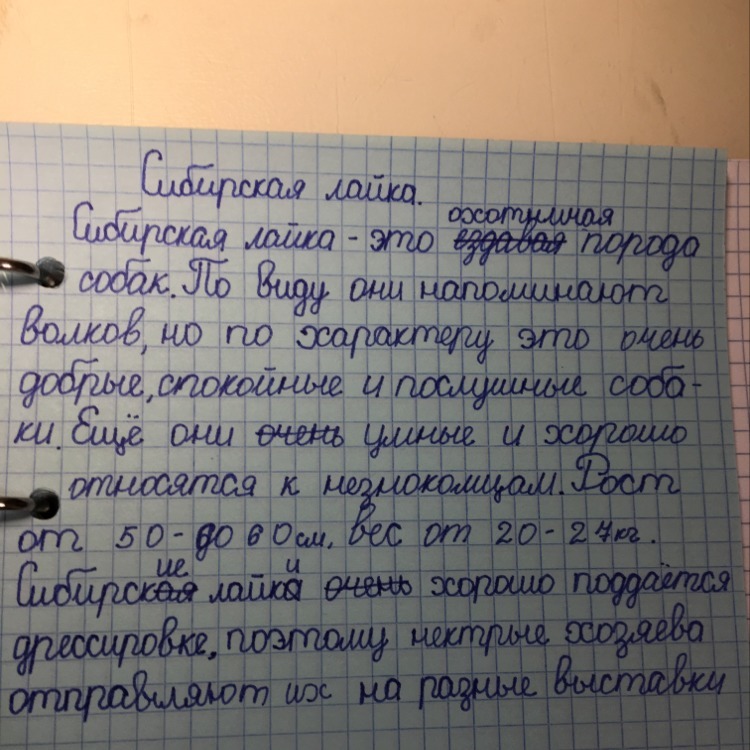 Сибирская лайка.
охотничая
Сибирская лайка - это ездавая порода
собак. По виду они напоминают
волков, но по характеру это очень
добрые, спокойные и послушные соба-
ки. Ещё они очень умные и хорошо
относятся к незнокомцам. Рост
от 50 - до 60 см, вес от 20 - 27 кг.
ие и
Сибирская лайка очень хорошо поддаётся
дрессировке, поэтому нектрые хозяева
отправляют их на разные выставки